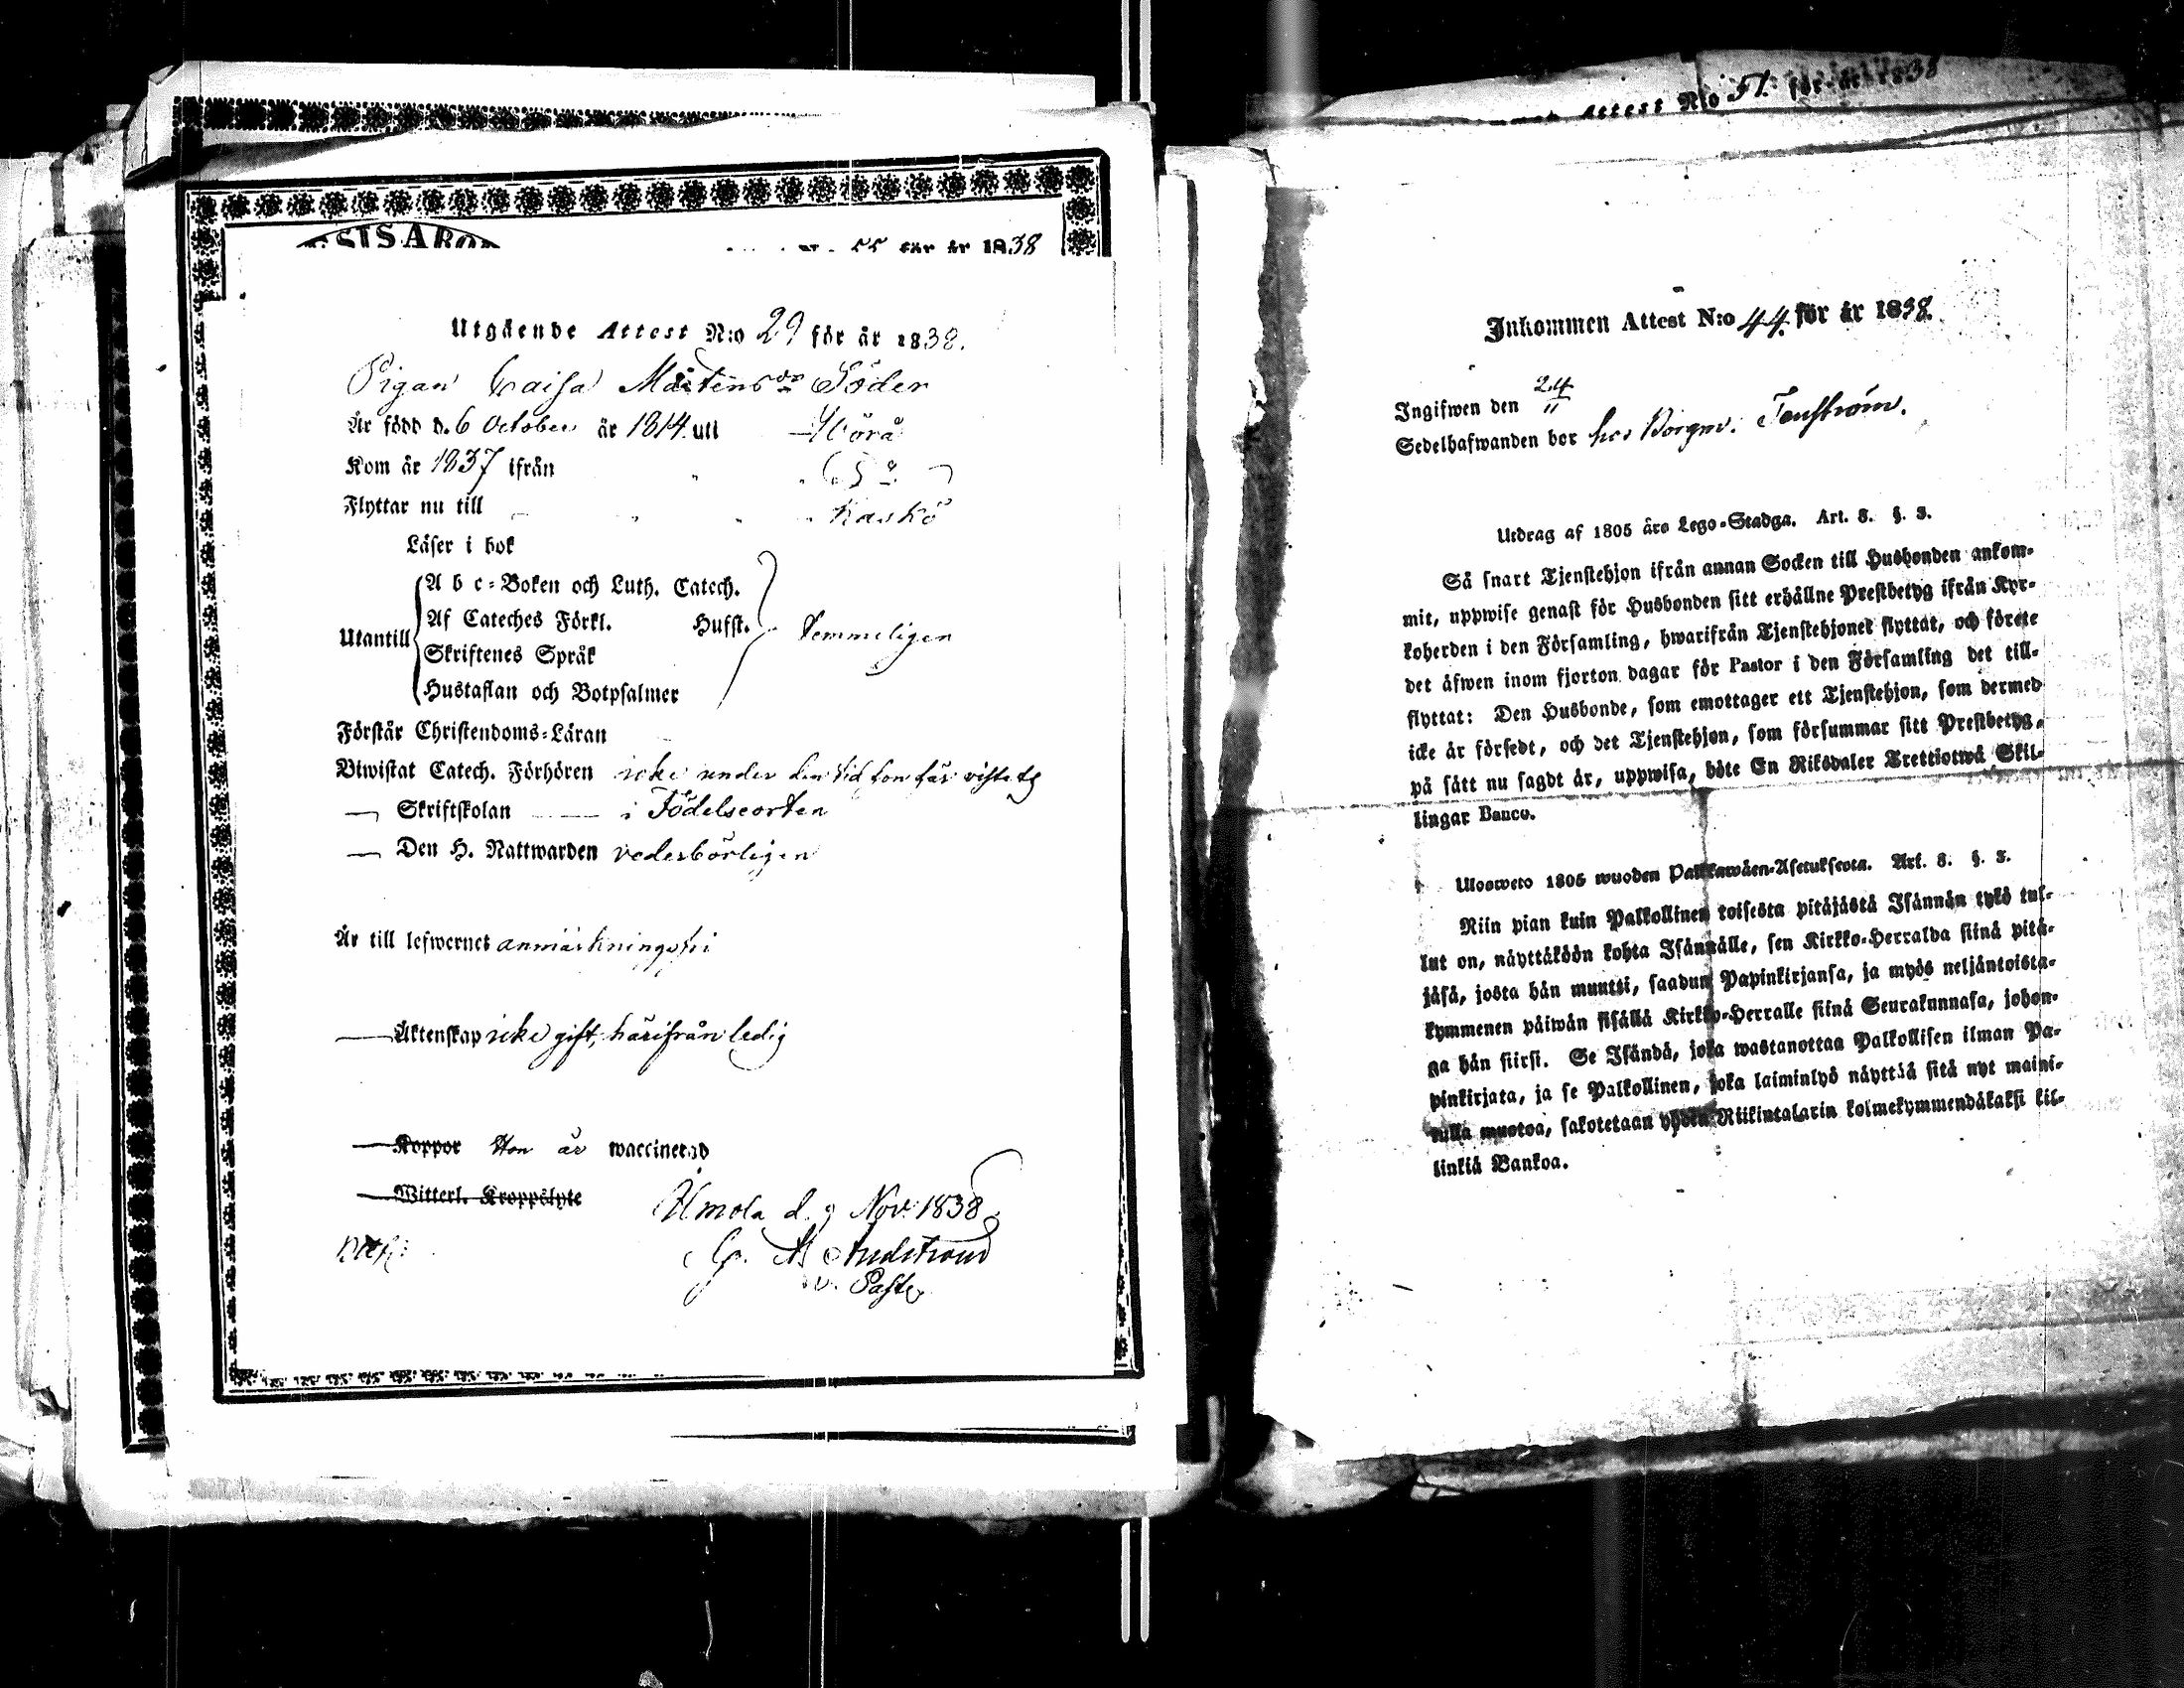 55 för år 1838
Utgående Attest N:o 29 för år 1838.
Pigan Caisa Mårtensdr Söder
Är född d. 6 October år 1814 uti Wörå
Kom år 1837 ifrån Do
Flyttar nu till Kaskö
Läser i bok
A b c-Boken och Luth. Catech.
Af Cateches Förkl. Hufst.
Utantill Temmeligen
Skriftenes Språk
Hustaflan och Botpsalmer
Förstår Christendoms-Läran
Biwistat Catech. Förhören icke under den tid hon här vistats
— Skriftskolan — i Födelseorten
— Den H. Nattwarden vederbörligen
Är till lefwernet anmärkningsfri
— Äktenskap icke gift, härifrån ledig
— Koppor Hon är waccinerad
— Witterl. Kroppslyte
d. 9 Nov. 1838
v. Pastor
Attest N:o 51. för år 1838
Inkommen Attest N:o 44. för år 1838.
Ingifwen den 24/11
Sedelhafwanden bor hos Borgm. Tenström.
Utdrag af 1805 års Lego-Stadga. Art. 8. §. 3.
Så snart Tjenstehjon ifrån annan Socken till Husbonden ankom-
mit, uppwise genast för Husbonden sitt erhållne Prestbetyg ifrån Kyr-
koherden i den Församling, hwarifrån Tjenstehjonet flyttat, och förete
det äfwen inom fjorton dagar för Pastor i den Församling det till-
flyttat: Den Husbonde, som emottager ett Tjenstehjon, som dermed
icke är försedt, och det Tjenstehjon, som försummar sitt Prestbetyg,
på sätt nu sagdt är, uppwisa, böte En Riksdaler Trettiotwå Skil-
lingar Banco.
Uloswето 1805 wuoden Palkkawäen-Asetuksesta. Art. 8. §. 3.
Niin pian kuin Palkollinen toisesta pitäjästä Isännän tykö tul-
lut on, näyttäköön kohta Isännälle, sen Kirkko-Herralda siinä pitä-
jäsä, josta hän muutti, saadun Papinkirjansa, ja myös neljäntoista-
kymmenen päiwän sisällä Kirkko-Herralle siinä Seurakunnasa, johon-
ga hän siirsi. Se Isändä, joka wastanottaa Palkollisen ilman Pa-
pinkirjata, ja se Palkollinen, joka laiminlyö näyttää sitä nyt maini-
tulla muotoa, sakotetaan yhden Riikintalarin kolmekymmendäkaksi kil-
linkiä Bankoa.